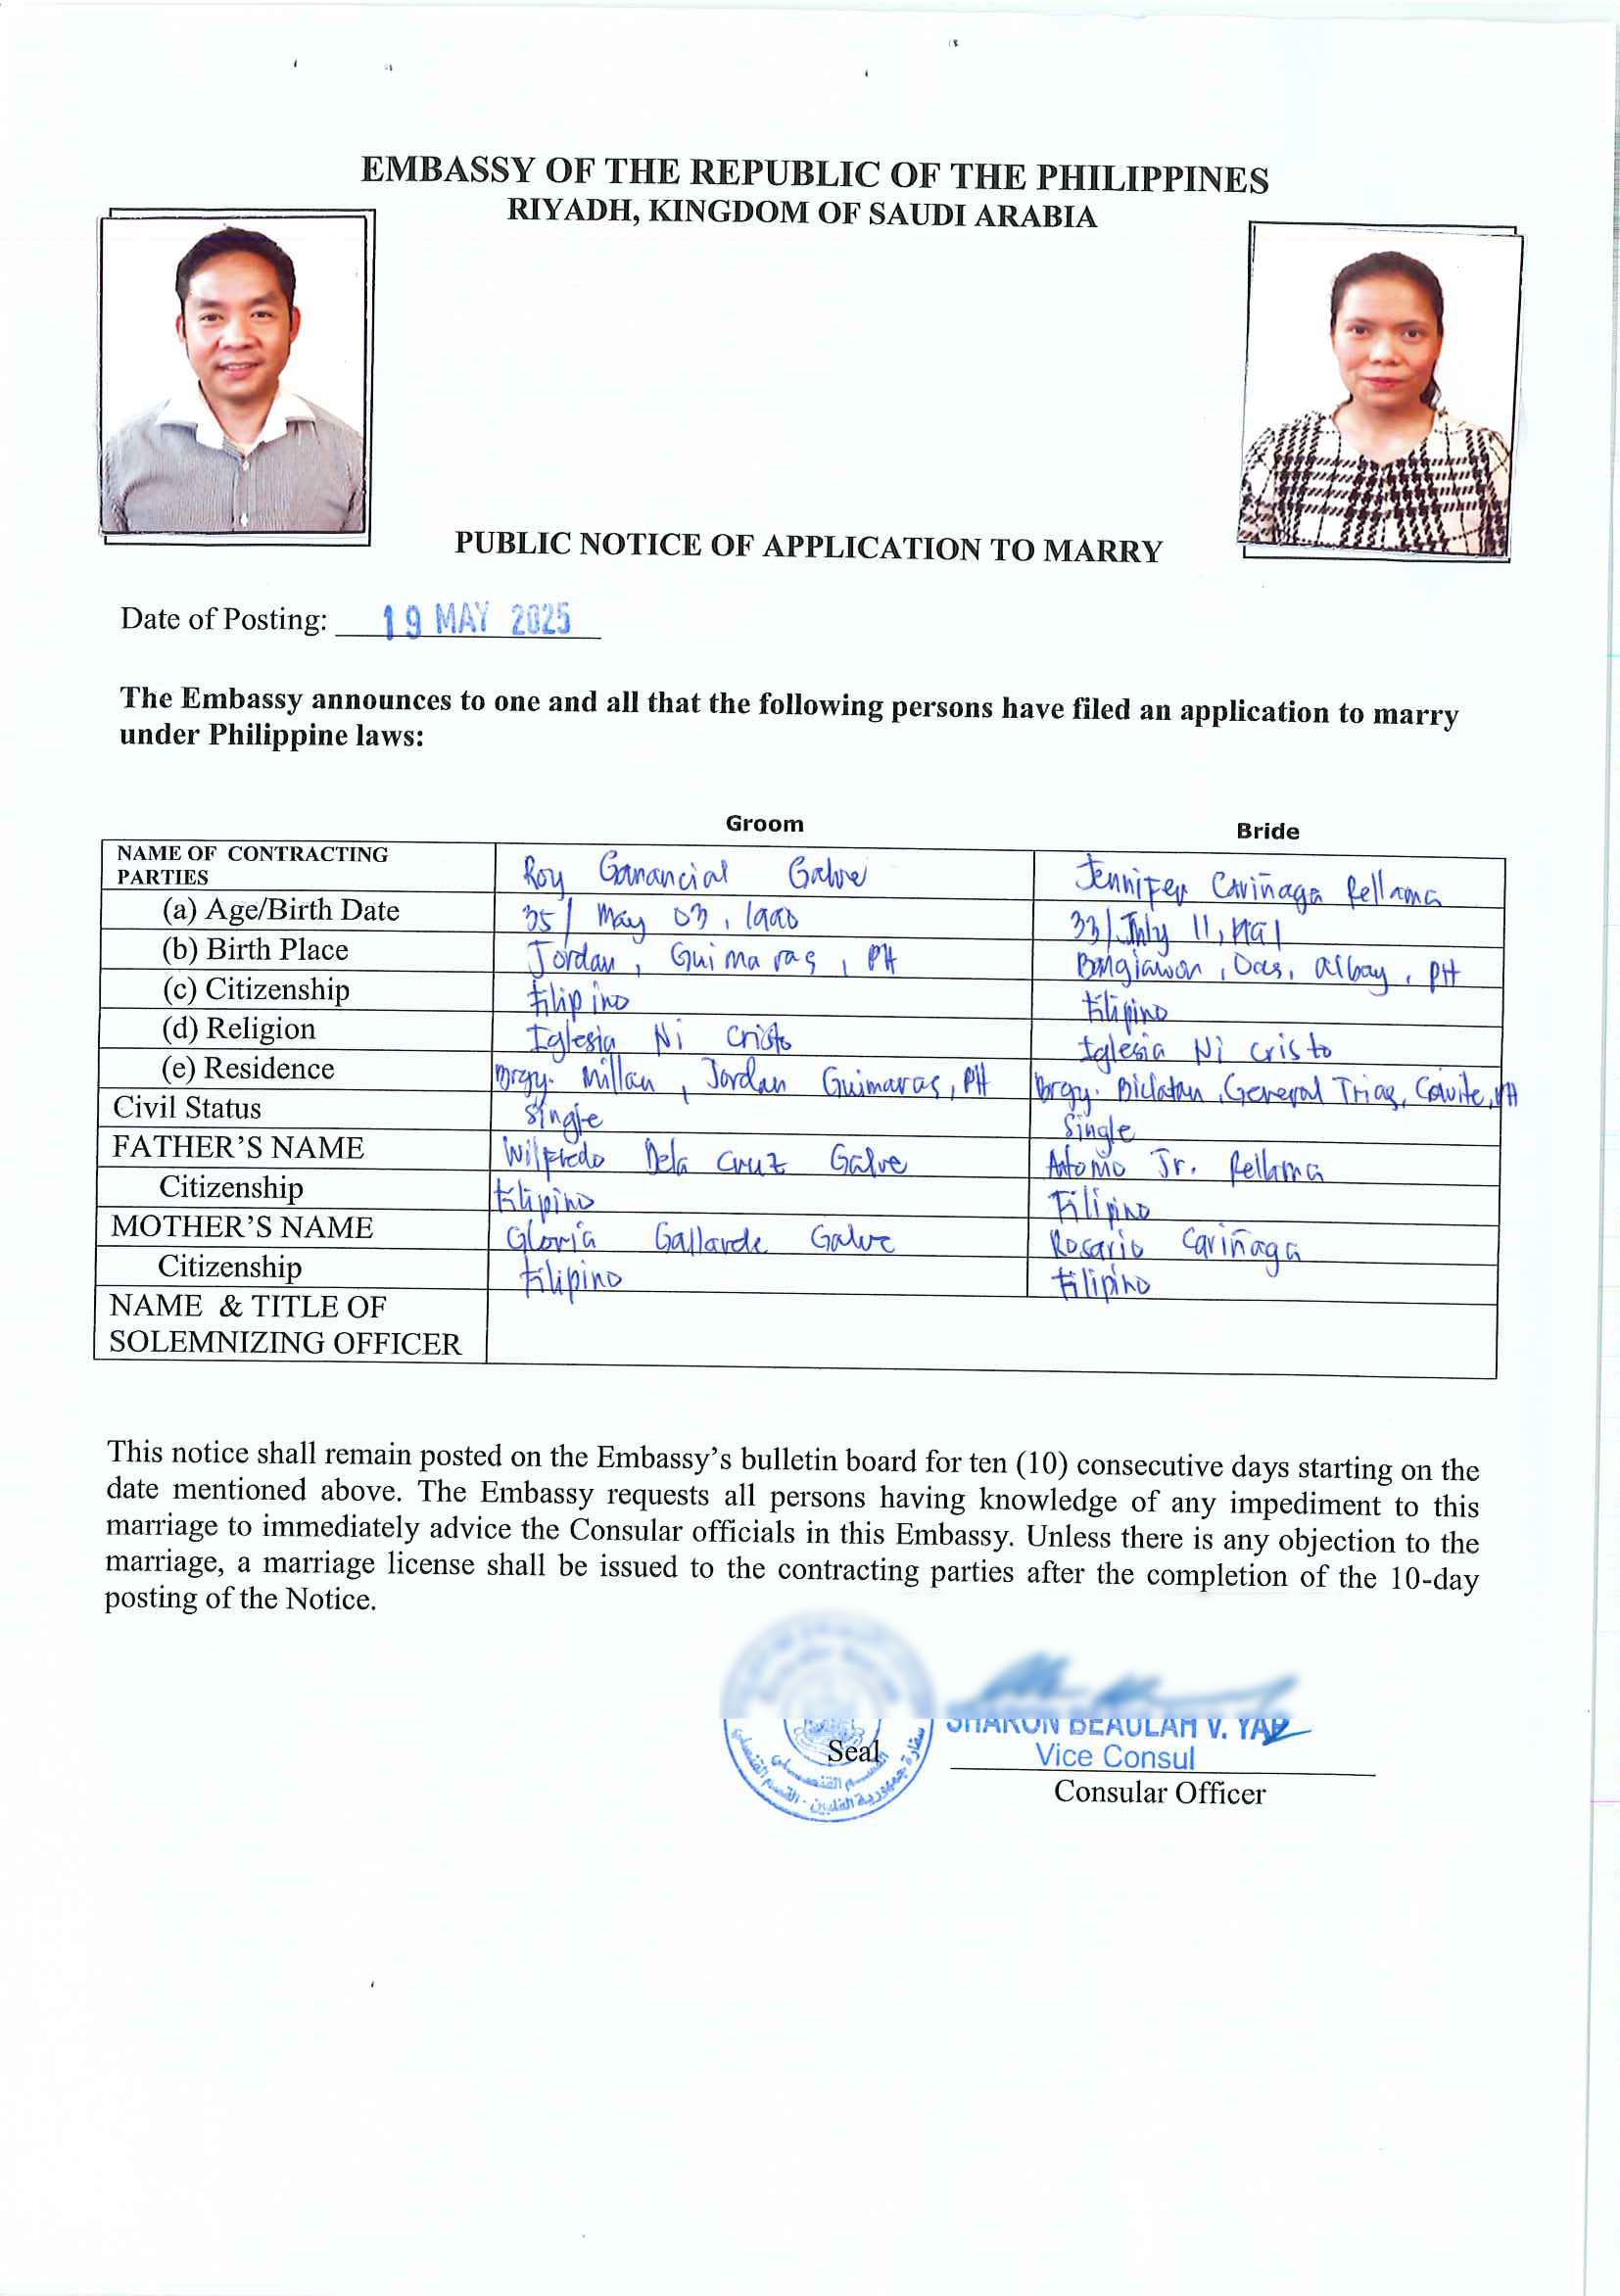 EMBASSY OF THE REPUBLIC OF THE PHILIPPINES
RIYADH, KINGDOM OF SAUDI ARABIA
PUBLIC NOTICE OF APPLICATION TO MARRY
Date of Posting: 19 MAY 2025
The Embassy announces to one and all that the following persons have filed an application to marry
under Philippine laws:
Groom Bride
NAME OF CONTRACTING PARTIES Roy Ganancial Galve Jennifer Cariñaga Rellama
(a) Age/Birth Date 35/ May 03, 1990 33/July 11,
(b) Birth Place Jordan, Guimaras, PH Oas, Albay, PH
(c) Citizenship Filipino Filipino
(d) Religion Iglesia Ni Cristo Iglesia Ni Cristo
(e) Residence Brgy. Millan, Jordan Guimaras, PH Brgy. Biclatan, General Trias, Cavite, PH
Civil Status Single Single
FATHER'S NAME Wilfredo Dela Cruz Galve Antonio Jr. Rellama
Citizenship Filipino Filipino
MOTHER'S NAME Gloria Gallarde Galve Rosario Cariñaga
Citizenship Filipino Filipino
NAME & TITLE OF
SOLEMNIZING OFFICER
This notice shall remain posted on the Embassy's bulletin board for ten (10) consecutive days starting on the
date mentioned above. The Embassy requests all persons having knowledge of any impediment to this
marriage to immediately advice the Consular officials in this Embassy. Unless there is any objection to the
marriage, a marriage license shall be issued to the contracting parties after the completion of the 10-day
posting of the Notice.
SHARON BEAULAH V. YAP
Seal Vice Consul
Consular Officer
سفارة جمهورية الفلبين - القسم القنصلي
القسم القنصلي